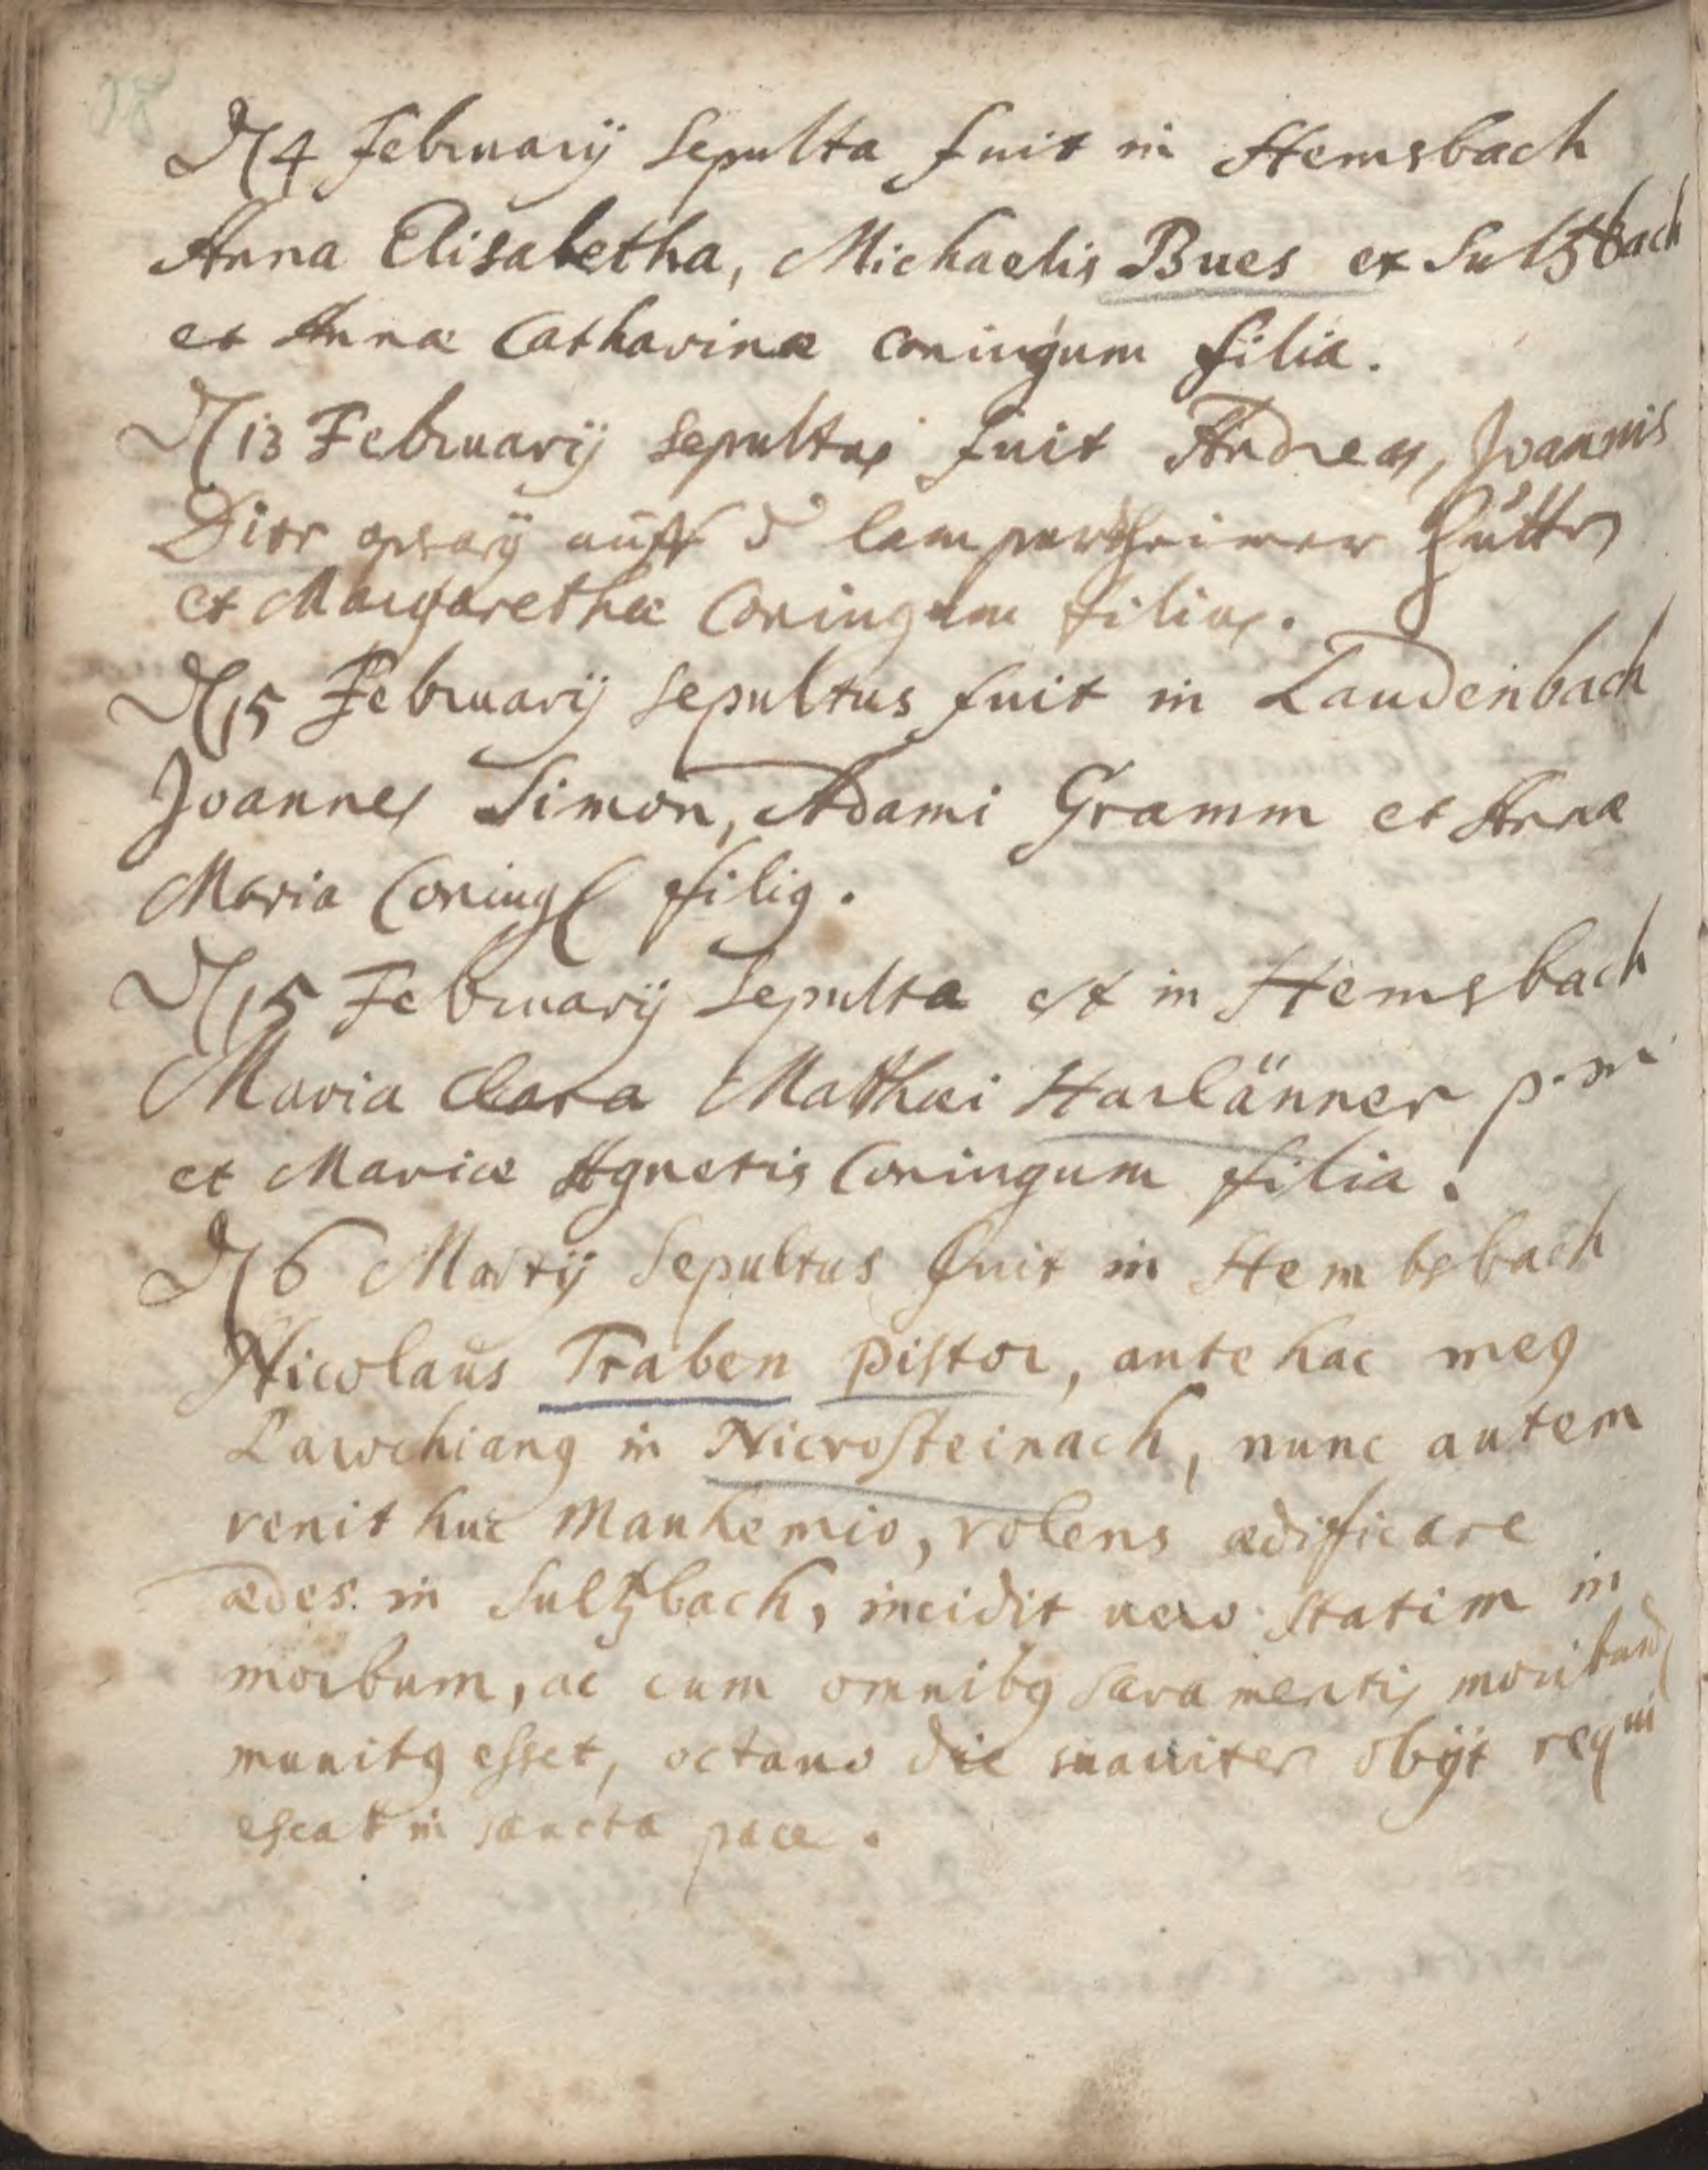 D 4 Februarij Sepulta fuit in Hemsbach
Anna Elisabetha, Michaelis Bues ex Sultzbach
et Annæ Catharinæ coniugum filia.
D 13 Februarij sepultus fuit Andreas, Joannis
Dier auff d lampertheimer hütten
et Margarethæ Coniugum filius.
D 15 Februarij sepultus fuit in Laudenbach
Joannes Simon, Adami Gramm et Annæ
Maria Coniug filiq.
D 15 Februarij Sepulta est in Hemsbach
Maria Clara Matthæi Harlänner p. m
et Mariæ Agnetis Coniugum filia.
D 6 Martij Sepultus fuit in Hembsbach
Nicolaus Traben pistor, ante hac meq
Parochianq in Nicrosteinach, nunc autem
venit huc Manhemio, volens ædificare
ædes in Sultzbach, incidit vero statim in
morbum, ac cum omnibq sacramentis moribund
munitq esset, octavo die suaviter obijt requi
escat in sancta pace.